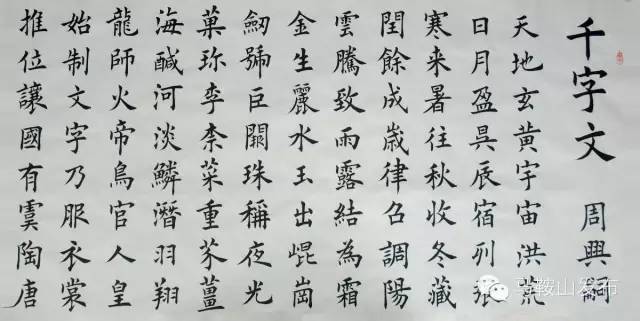 千字文 周興嗣
天地玄黃宇宙洪荒
日月盈昃辰宿列張
寒来暑往秋收冬藏
閏餘成歲律召調陽
雲騰致雨露結為霜
金生麗水玉出崐崗
劒號巨闕珠稱夜光
菓珎李柰菜重芥薑
海鹹河淡鱗潛羽翔
龍師火帝鳥官人皇
始制文字乃服衣裳
推位讓國有虞陶唐
马鞍山发布